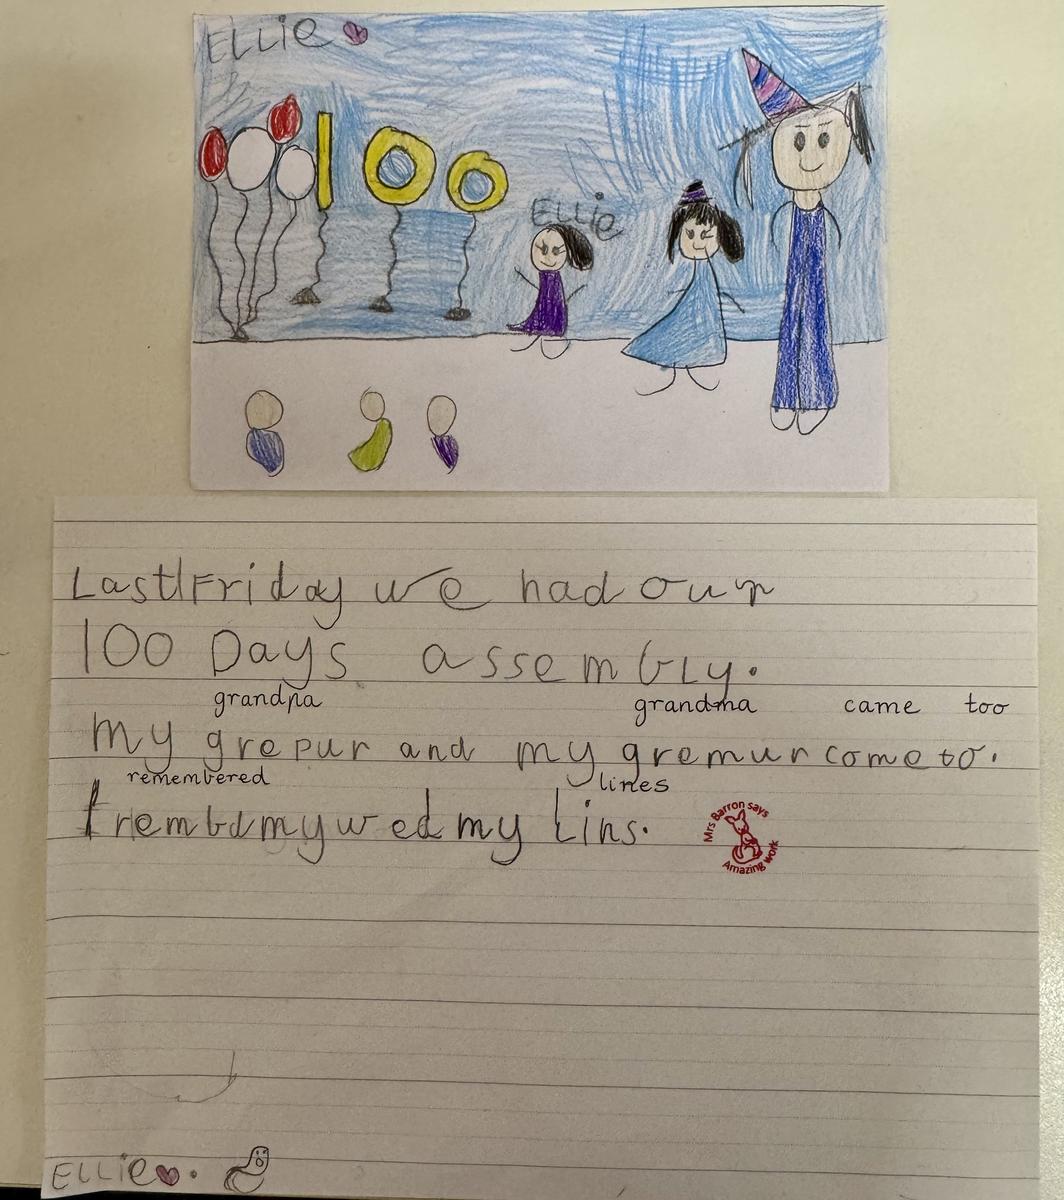 ELLiE
100
ELLiE
Last Friday we had our
100 Days assembly.
grandpa grandma came too
my grepur and my gremur come to.
remembered lines
I rembdmywed my lins.
Mrs Barron says
Amazing work
ELLiE